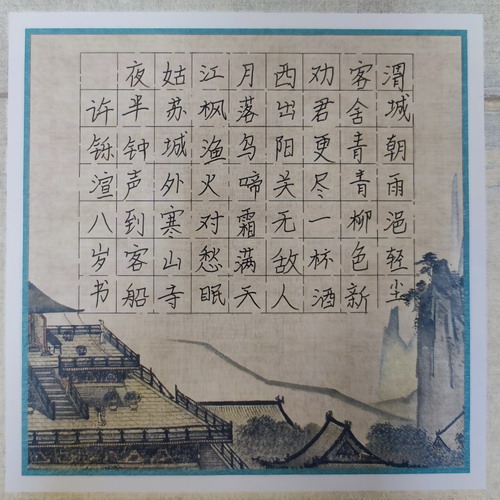 渭城朝雨浥轻尘
客舍青青柳色新
劝君更尽一杯酒
西出阳关无故人
月落乌啼霜满天
江枫渔火对愁眠
姑苏城外寒山寺
夜半钟声到客船
许铄渲八岁书